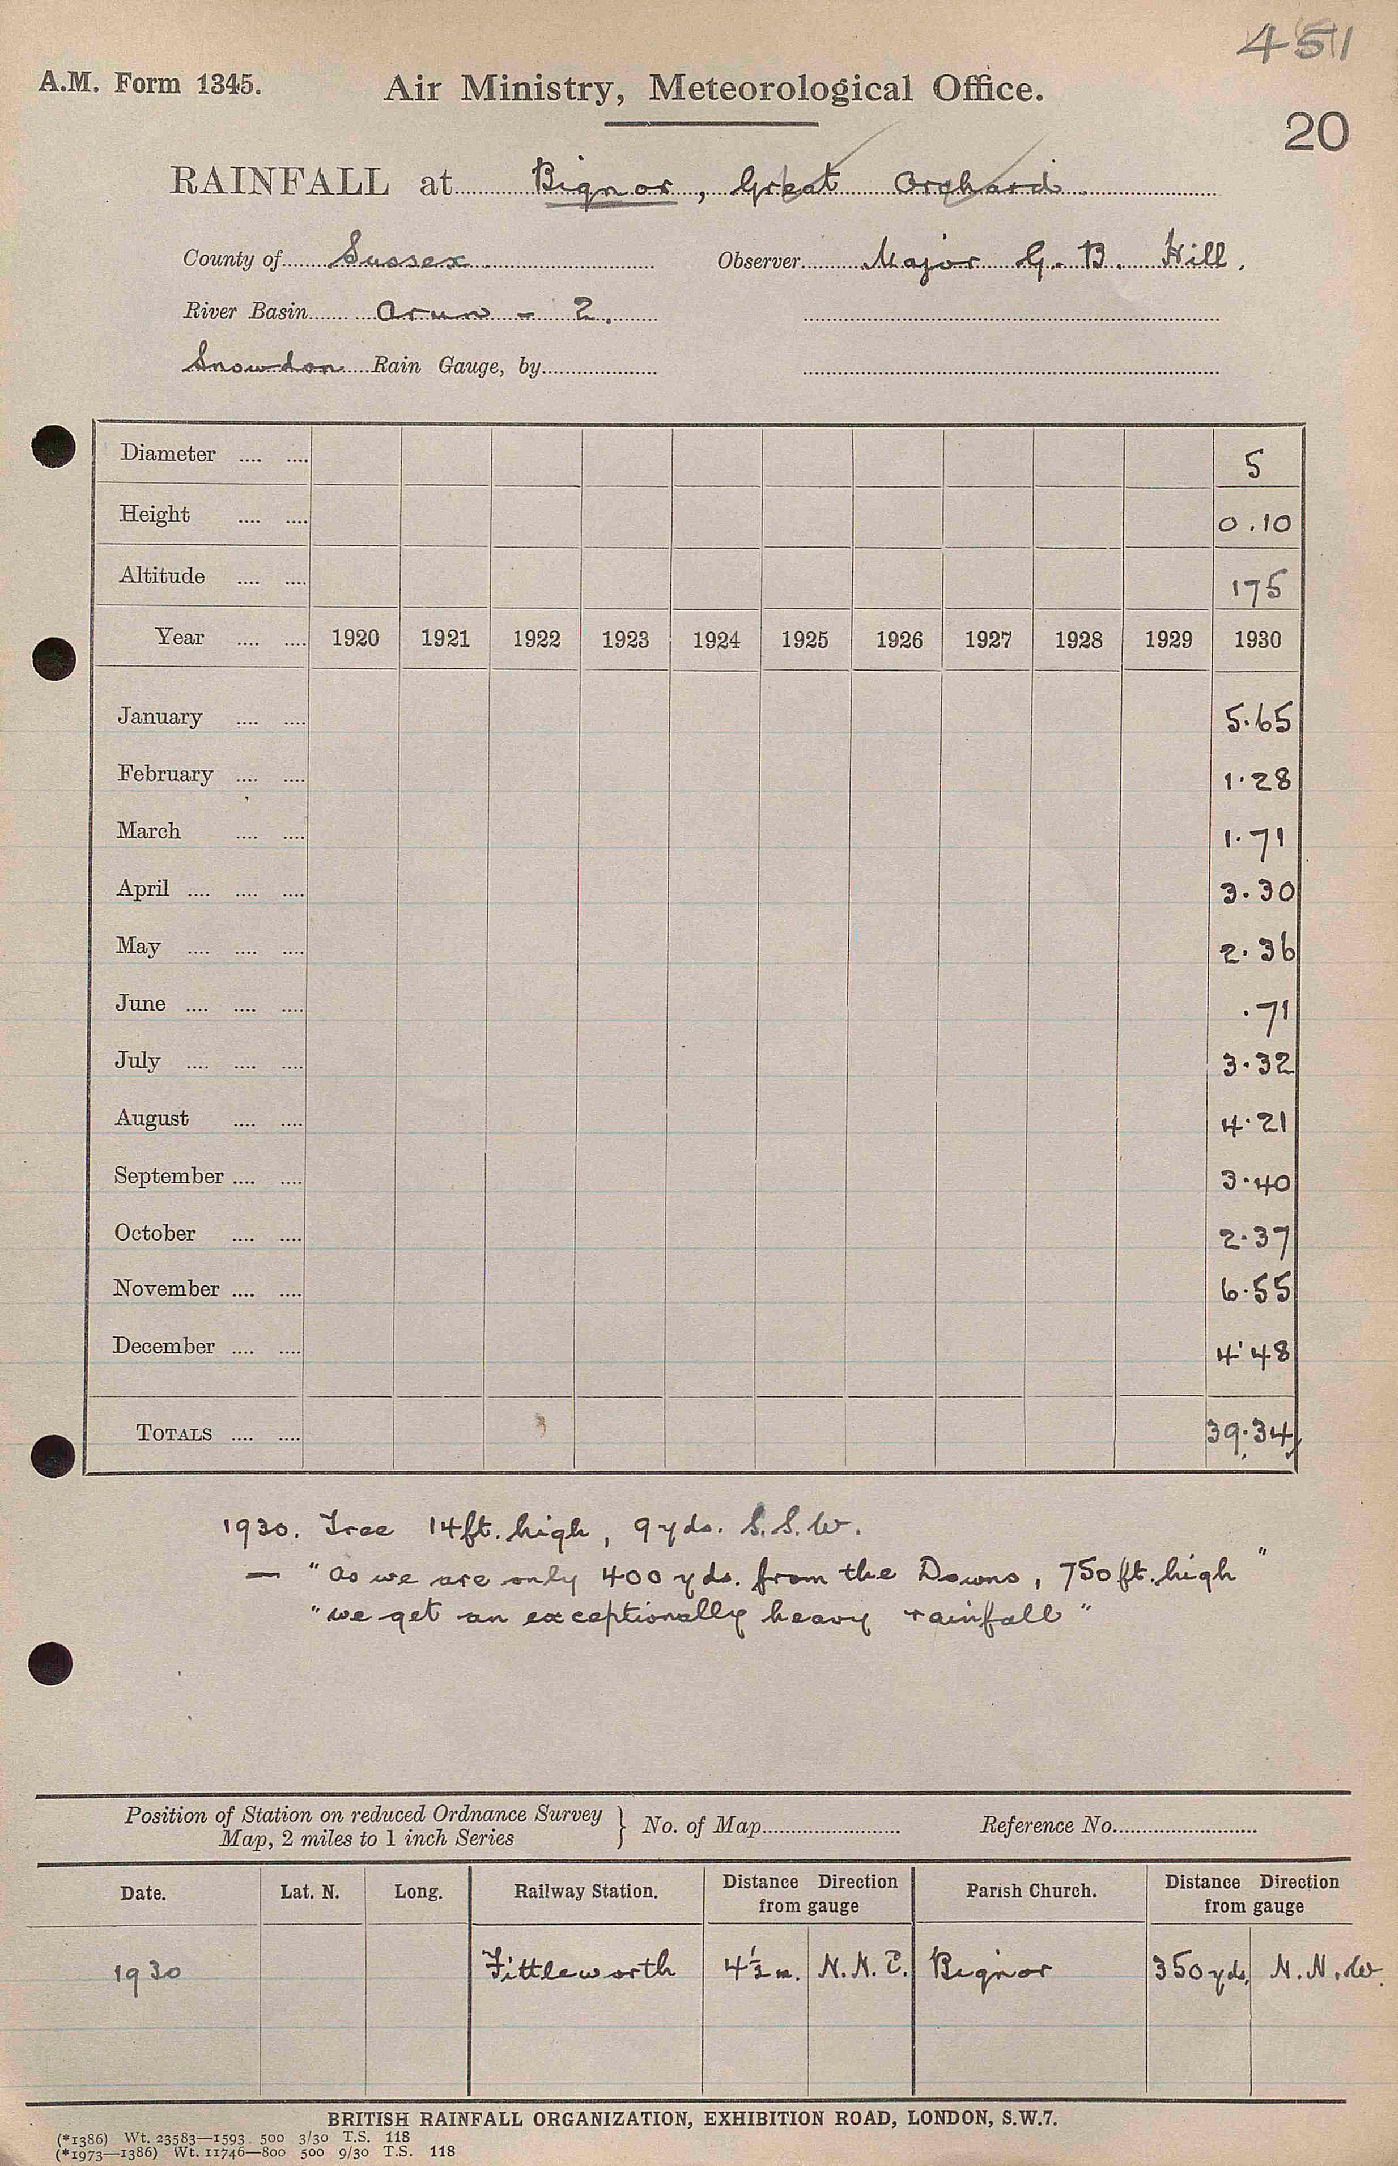 451
A.M. Form 1345. Air Ministry, Meteorological Office.
20
RAINFALL at Bignor, Great Orchard
County of Sussex Observer Major G. B. Hill.
River Basin Arun - 2.
Snowdon Rain Gauge, by
Diameter .... .... 5
Height .... .... 0.10
Altitude .... .... 175
Year .... .... 1920 1921 1922 1923 1924 1925 1926 1927 1928 1929 1930
January .... .... 5.65
February .... .... 1.28
March .... .... 1.71
April .... .... .... 3.30
May .... .... .... 2.36
June .... .... .... .71
July .... .... .... 3.32
August .... .... 4.21
September .... .... 3.40
October .... .... 2.37
November .... .... 6.55
December .... .... 4.48
TOTALS .... .... 39.34
1930. Tree 14ft. high, 9 yds. S.S.W.
— "as we are only 400 yds. from the Downs, 750 ft. high"
"we get an exceptionally heavy rainfall"
Position of Station on reduced Ordnance Survey Map, 2 miles to 1 inch Series } No. of Map Reference No.
Date. Lat. N. Long. Railway Station. Distance Direction from gauge Parish Church. Distance Direction from gauge
1930 Fittleworth 4½ m. N.N.E. Bignor 350 yds. N.N.W.
BRITISH RAINFALL ORGANIZATION, EXHIBITION ROAD, LONDON, S.W.7.
(*1386) Wt. 23583—1593 500 3/30 T.S. 118
(*1973—1386) Wt. 11746—800 500 9/30 T.S. 118